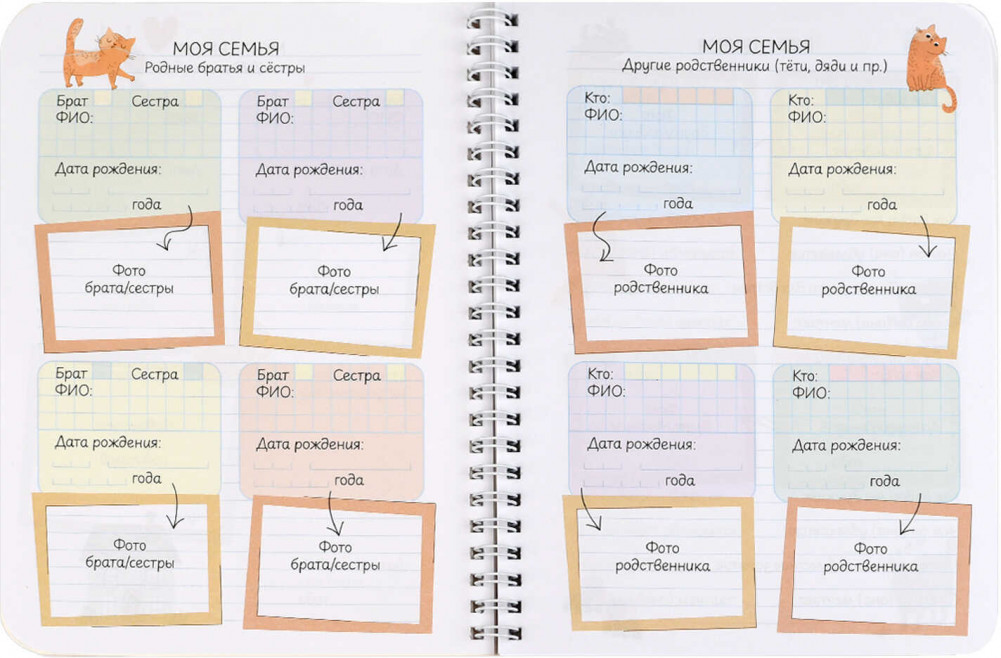 МОЯ СЕМЬЯ
Родные братья и сёстры
Брат Сестра
ФИО:
Дата рождения:
года
Фото
брата/сестры
Брат Сестра
ФИО:
Дата рождения:
года
Фото
брата/сестры
Брат Сестра
ФИО:
Дата рождения:
года
Фото
брата/сестры
Брат Сестра
ФИО:
Дата рождения:
года
Фото
брата/сестры
МОЯ СЕМЬЯ
Другие родственники (тёти, дяди и пр.)
Кто:
ФИО:
Дата рождения:
года
Фото
родственника
Кто:
ФИО:
Дата рождения:
года
Фото
родственника
Кто:
ФИО:
Дата рождения:
года
Фото
родственника
Кто:
ФИО:
Дата рождения:
года
Фото
родственника